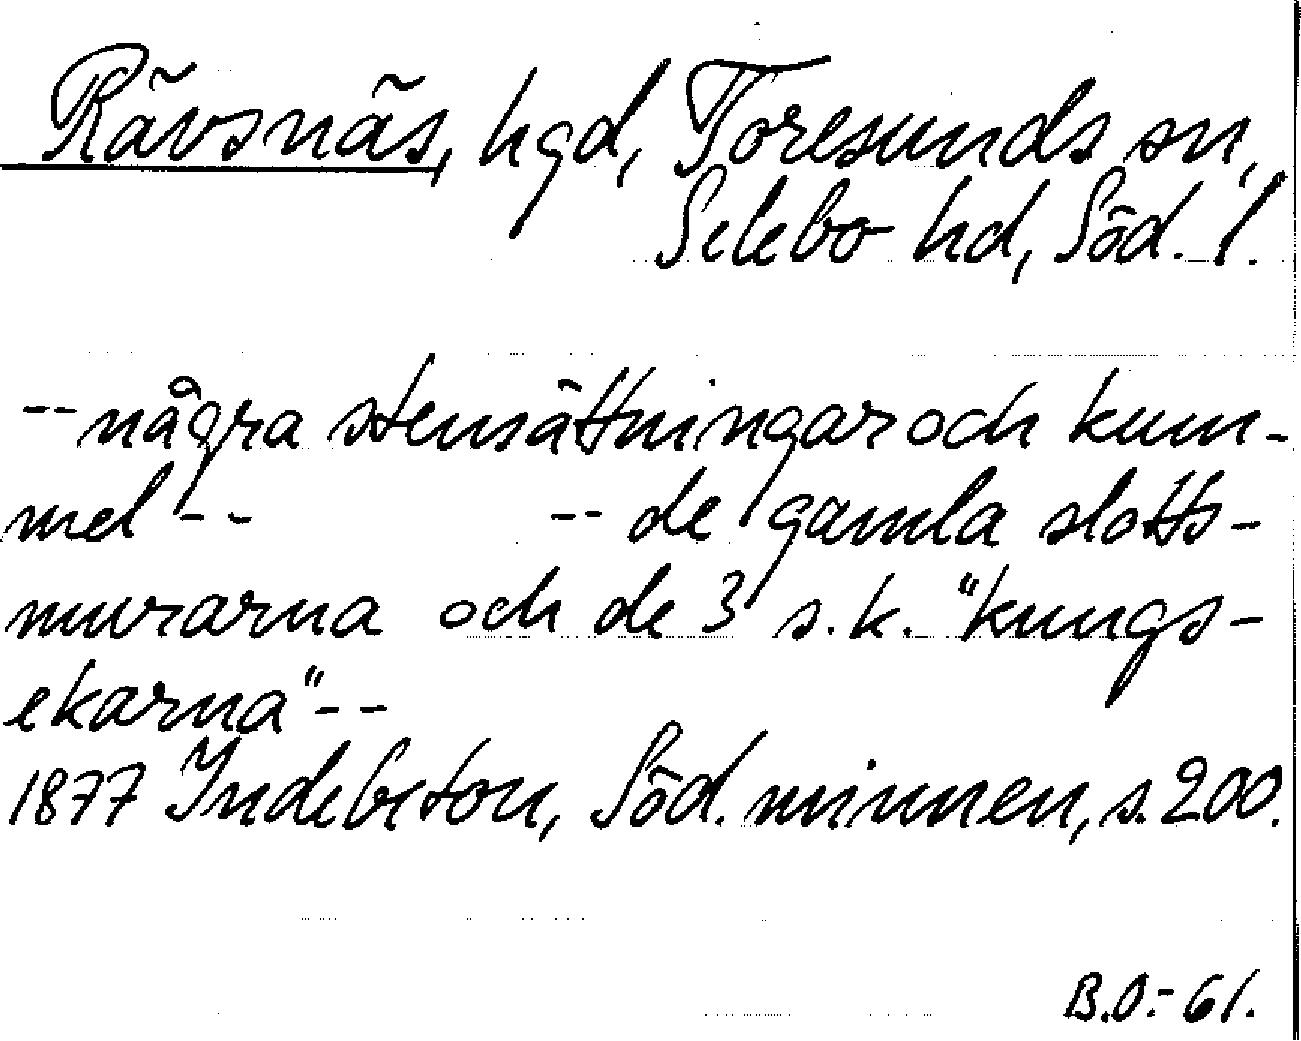 Rävsnäs, hgd, Toresunds sn,
Selebo hd, Söd. l.
-- några stensättningar och kum-
mel -- -- de gamla slotts-
murarna och de 3 s.k. "kungs-
ekarna" --
1877 Indebetou, Söd. minnen, s. 200.
B.O.-61.